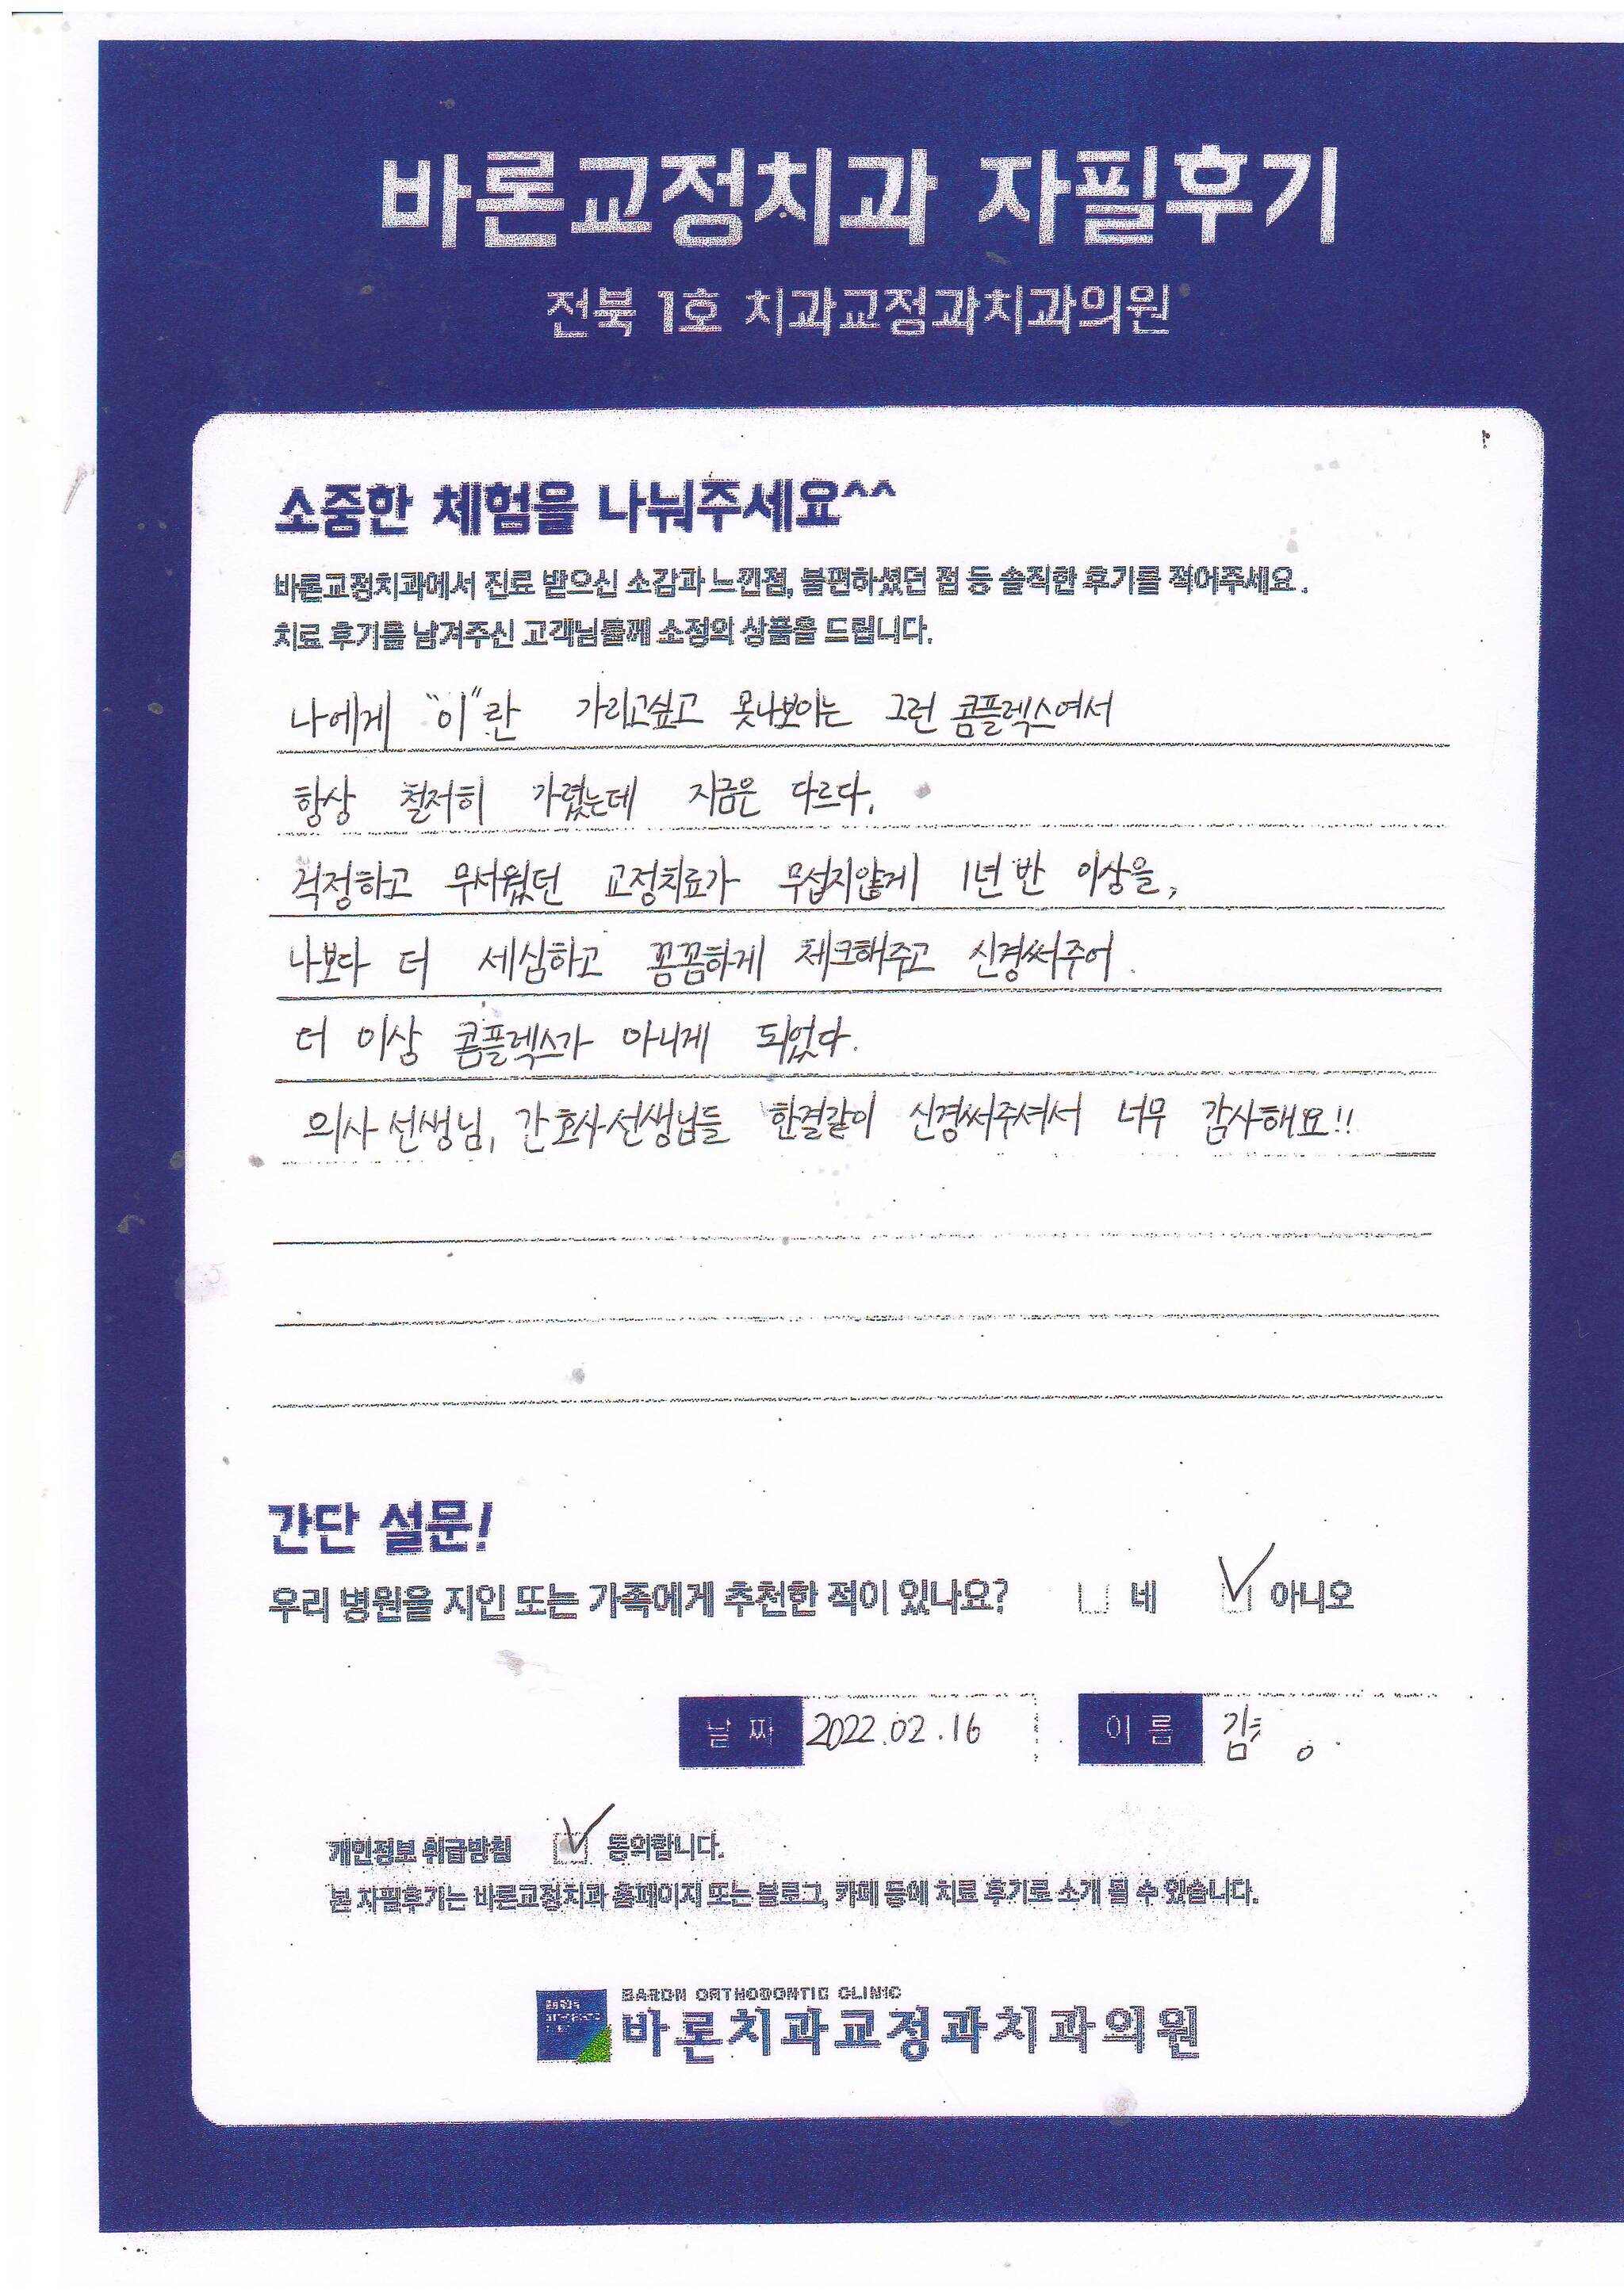 바론교정치과 자필후기
전북 1호 치과교정과치과의원
소중한 체험을 나눠주세요^^
바론교정치과에서 진료 받으신 소감과 느낀점, 불편하셨던 점 등 솔직한 후기를 적어주세요.
치료 후기를 남겨주신 고객님들께 소정의 상품을 드립니다.
나에게 "이"란 가리고싶고 못나보이는 그런 콤플렉스여서
항상 철저히 가렸는데 지금은 다르다.
걱정하고 무서웠던 교정치료가 무섭지않게 1년 반 이상을,
나보다 더 세심하고 꼼꼼하게 체크해주고 신경써주어
더 이상 콤플렉스가 아니게 되었다.
의사 선생님, 간호사선생님들 한결같이 신경써주셔서 너무 감사해요!!
간단 설문!
우리 병원을 지인 또는 가족에게 추천한 적이 있나요? 네 아니오
날짜 2022.02.16 이름 김
개인정보 취급방침 동의합니다.
본 자필후기는 바론교정치과 홈페이지 또는 블로그, 카페 등에 치료 후기로 소개 될 수 있습니다.
BARON ORTHODONTIC CLINIC
바론치과교정과치과의원